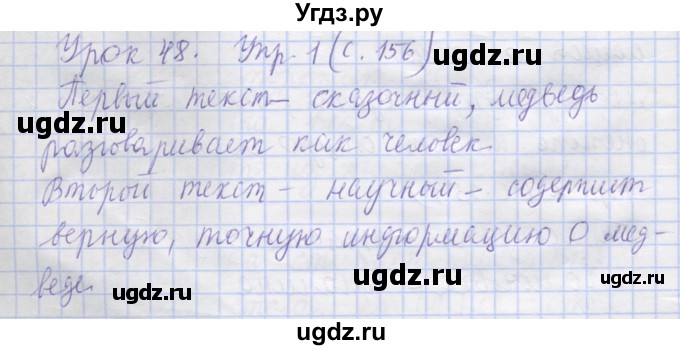 Угдз.ру
Урок 48. Упр. 1 (с. 156)
ugdz.ru
Первый текст – сказочный, медведь
ugdz.ru
ugdz.ru
разговаривает как человек.
Второй текст – научный – содержит
верную, точную информацию о мед-
веде.
ugdz.ru
ugdz.ru
ugdz.ru